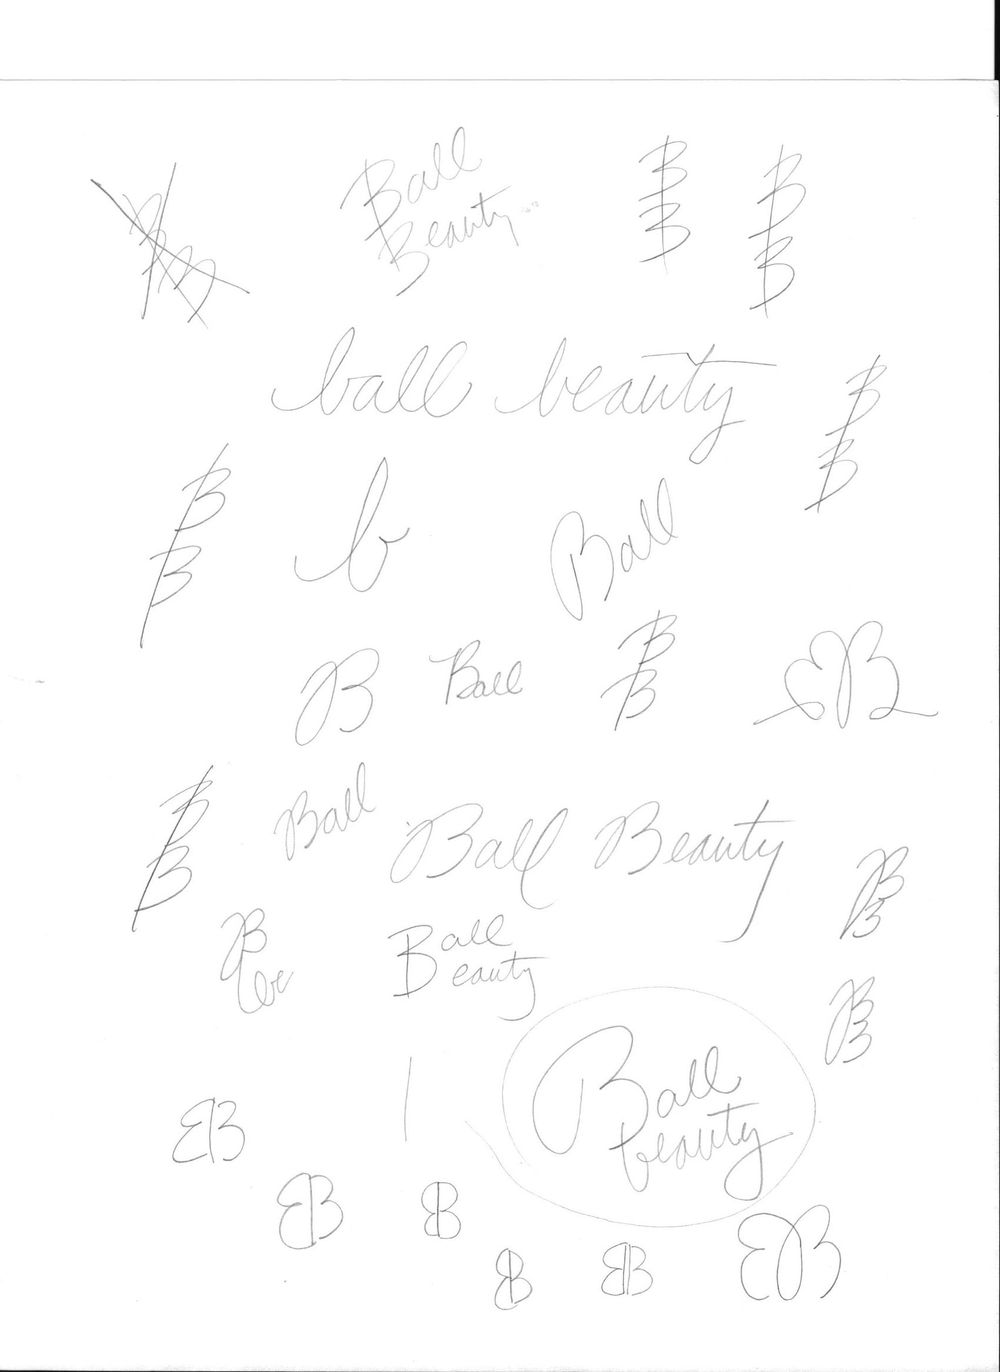 Ball
Beauty
B
B
B
B
B
B
ball beauty
B
B
B
B
b
Ball
B
Ball
B
B
B
B
B
Ball
Ball Beauty
B
B
B
be
Ball
Beauty
B
B
Ball
beauty
B
B
B
B
B
B